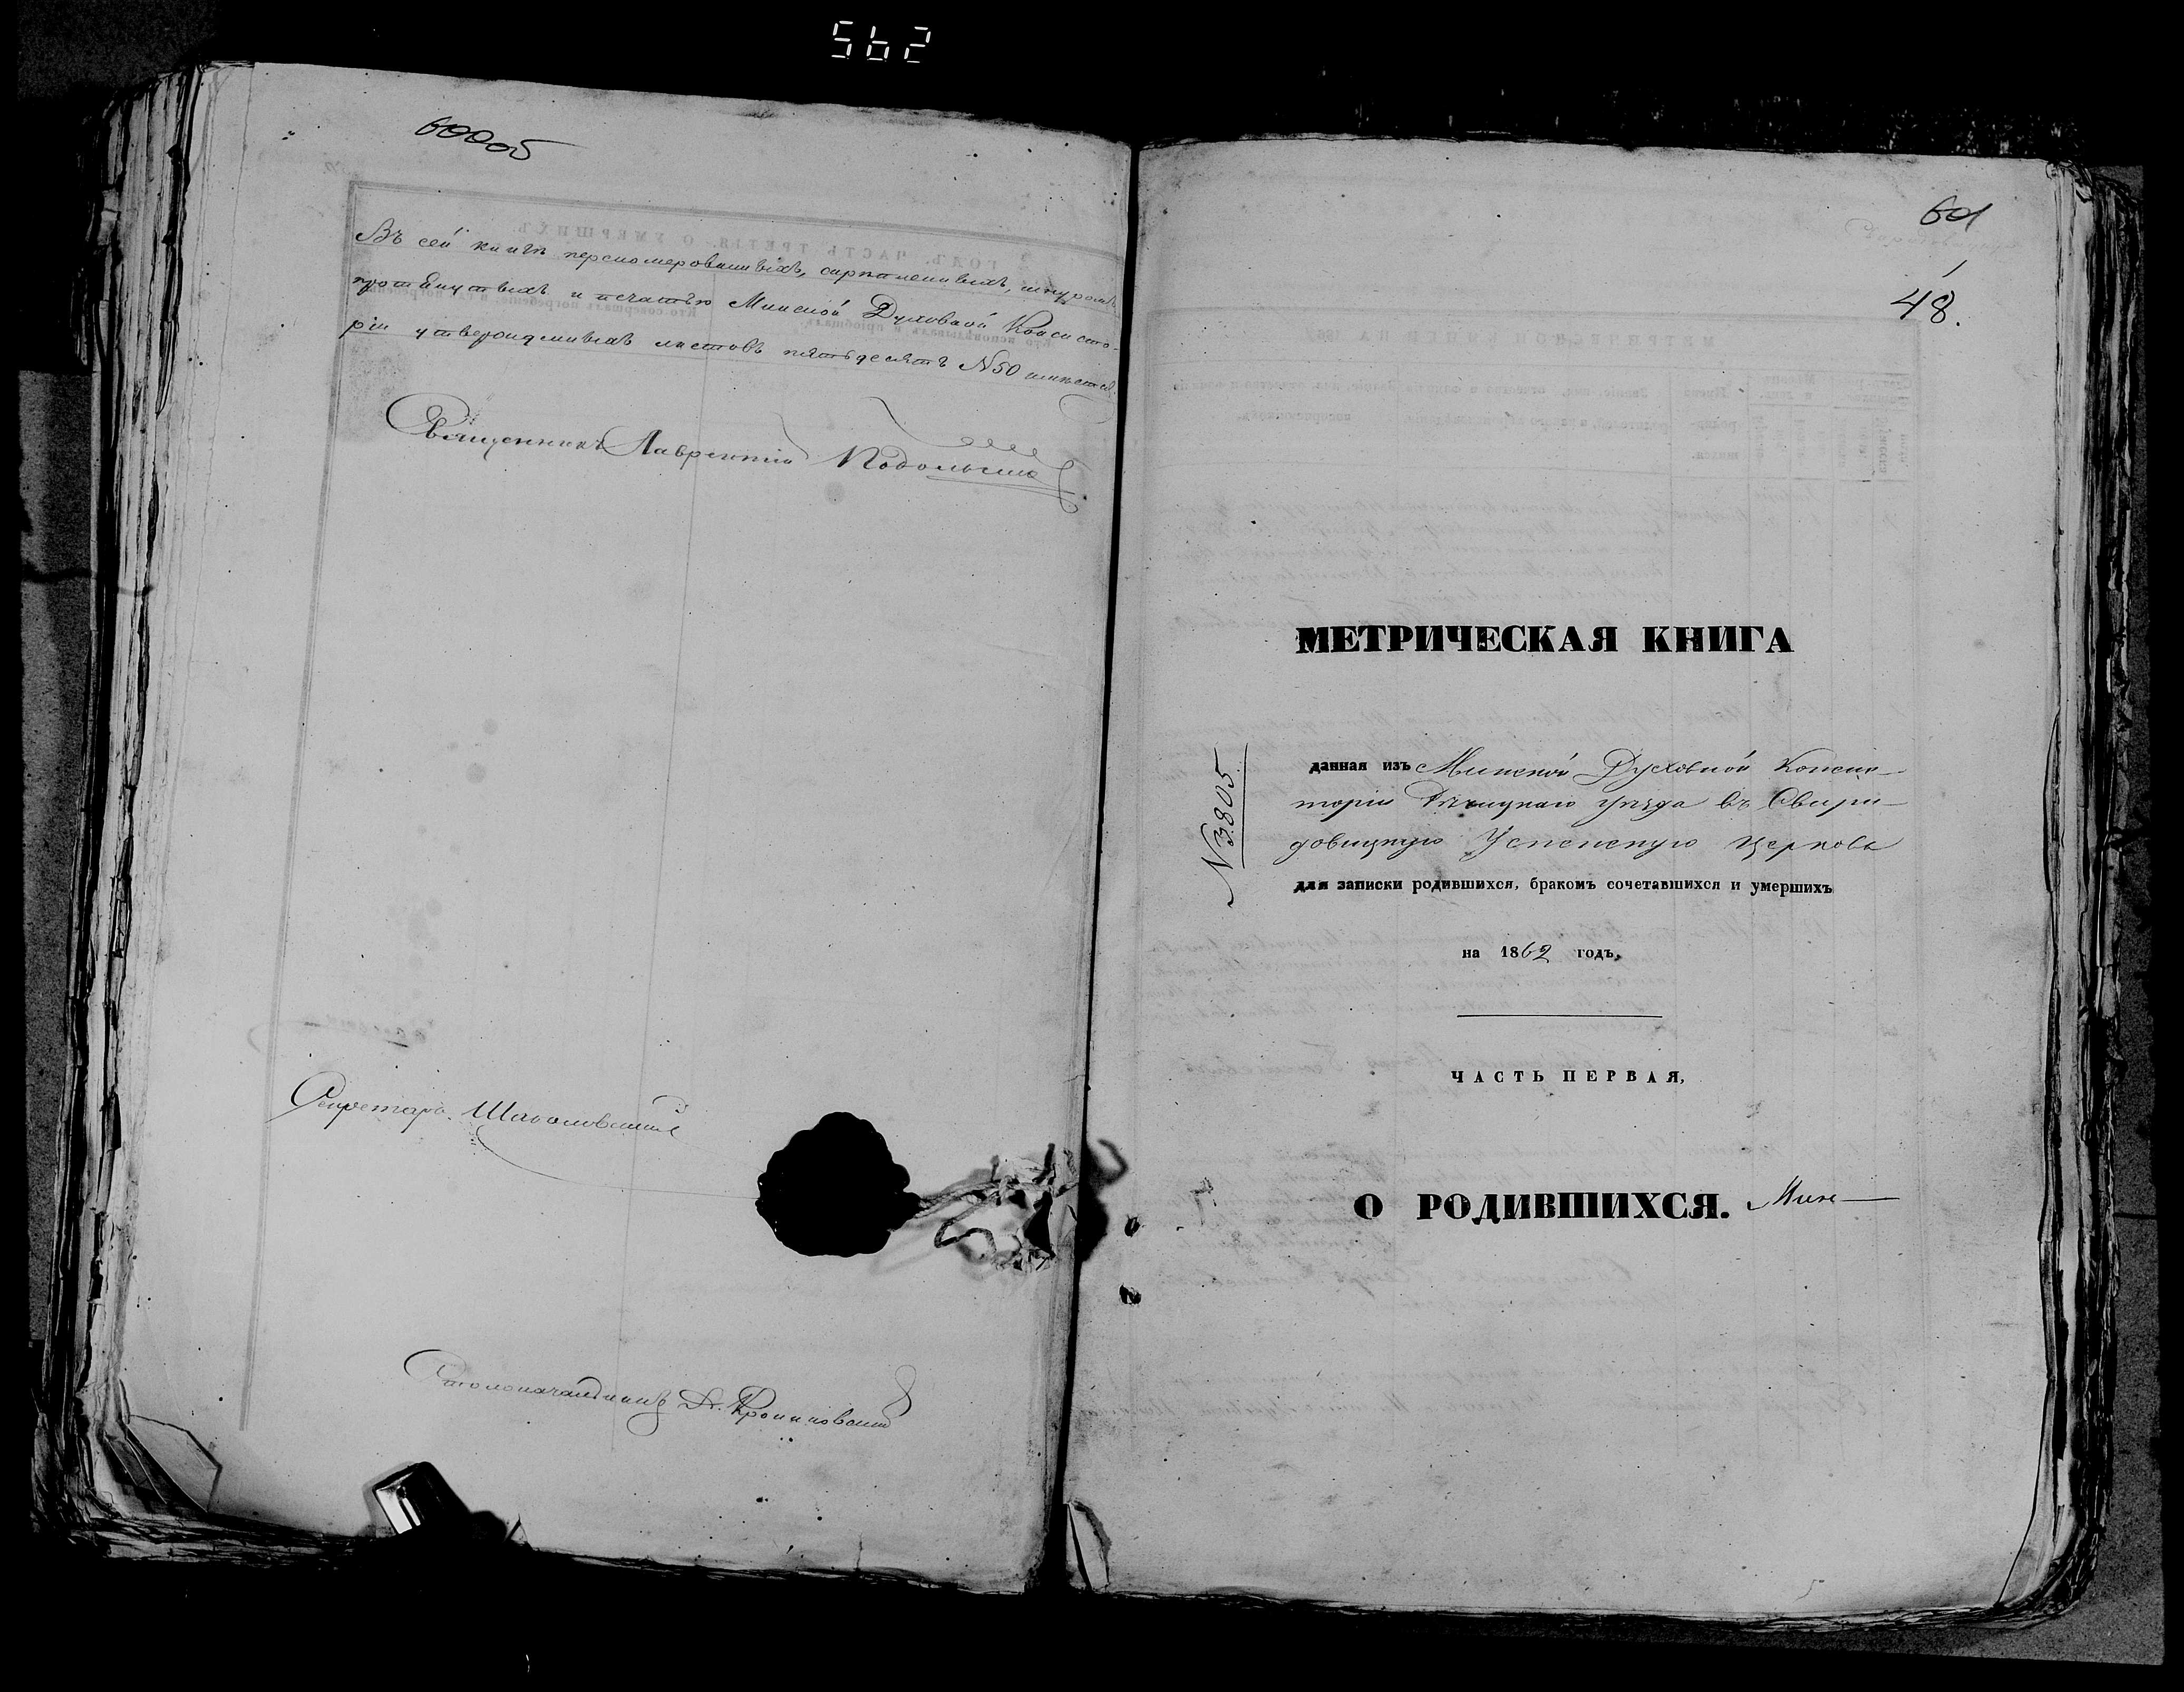 562
600об
Въ сей книгѣ перенумерованныхъ, скрѣпленныхъ, шнуромъ
протянутыхъ и печатью Минской Духовной Консисто-
ріи утвержденныхъ листовъ пятьдесятъ №50 имѣется
Священникъ Лаврентій
Секретарь
Столоначальникъ
601
48.
МЕТРИЧЕСКАЯ КНИГА
№3805
данная изъ Минской Духовной Консис-
торіи Рѣчицкаго уѣзда въ Свири-
довицкую Успенскую церковь
для записки родившихся, бракомъ сочетавшихся и умершихъ
на 1862 годъ.
ЧАСТЬ ПЕРВАЯ,
О РОДИВШИХСЯ. Мин—